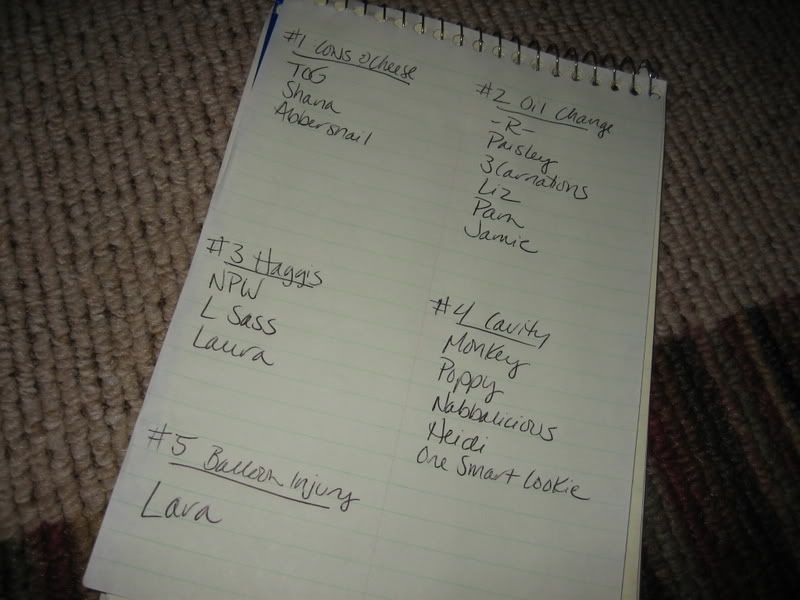 #1 Cows & Cheese
TCG
Shana
Abbersnail
#2 Oil Change
-R-
Paisley
3Carnations
Liz
Pam
Jamie
#3 Haggis
NPW
L Sass
Laura
#4 Cavity
Monkey
Poppy
Nabbalicious
Heidi
One Smart Cookie
#5 Balloon Injury
Lara